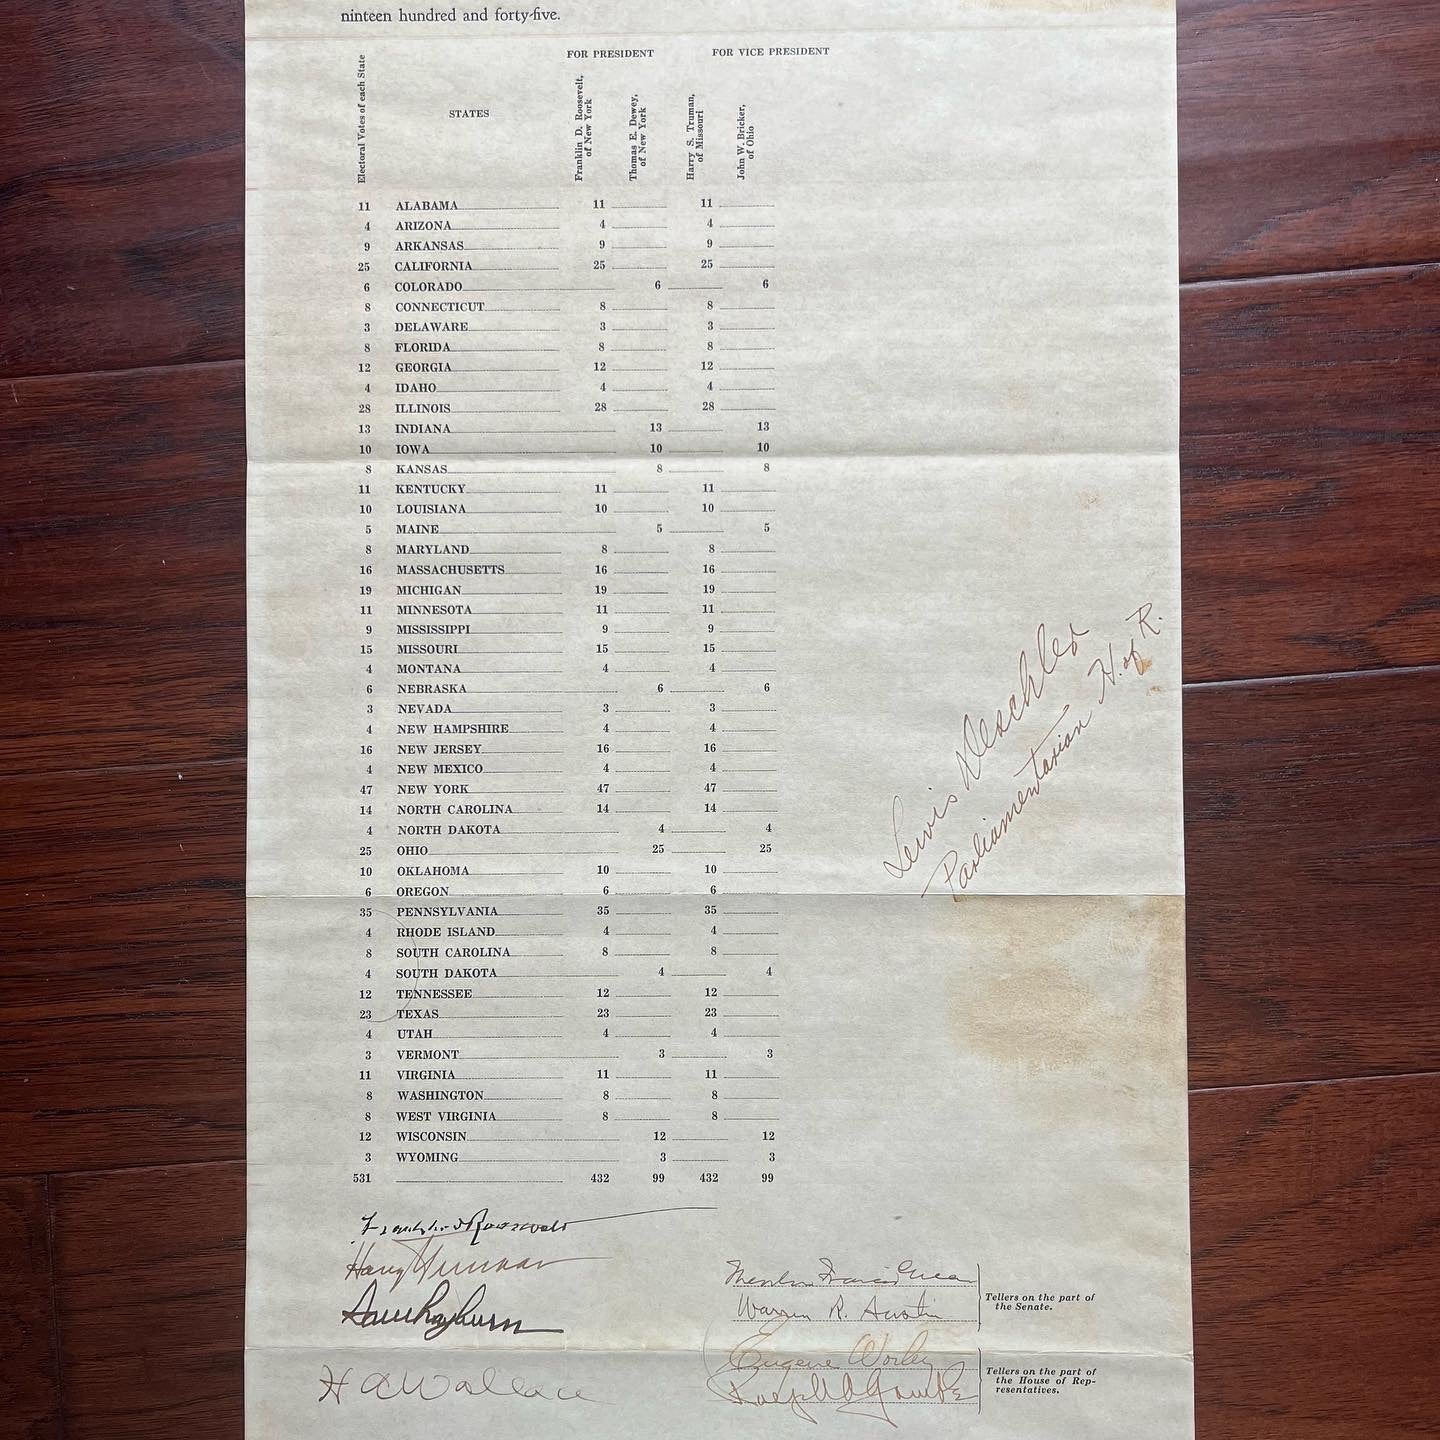 nineteen hundred and forty-five.
FOR PRESIDENT FOR VICE PRESIDENT
Electoral Votes of each State
STATES
Franklin D. Roosevelt, of New York
Thomas E. Dewey, of New York
Harry S. Truman, of Missouri
John W. Bricker, of Ohio
11 ALABAMA 11 11
4 ARIZONA 4 4
9 ARKANSAS 9 9
25 CALIFORNIA 25 25
6 COLORADO 6 6
8 CONNECTICUT 8 8
3 DELAWARE 3 3
8 FLORIDA 8 8
12 GEORGIA 12 12
4 IDAHO 4 4
28 ILLINOIS 28 28
13 INDIANA 13 13
10 IOWA 10 10
8 KANSAS 8 8
11 KENTUCKY 11 11
10 LOUISIANA 10 10
5 MAINE 5 5
8 MARYLAND 8 8
16 MASSACHUSETTS 16 16
19 MICHIGAN 19 19
11 MINNESOTA 11 11
9 MISSISSIPPI 9 9
15 MISSOURI 15 15
4 MONTANA 4 4
6 NEBRASKA 6 6
3 NEVADA 3 3
4 NEW HAMPSHIRE 4 4
16 NEW JERSEY 16 16
4 NEW MEXICO 4 4
47 NEW YORK 47 47
14 NORTH CAROLINA 14 14
4 NORTH DAKOTA 4 4
25 OHIO 25 25
10 OKLAHOMA 10 10
6 OREGON 6 6
35 PENNSYLVANIA 35 35
4 RHODE ISLAND 4 4
8 SOUTH CAROLINA 8 8
4 SOUTH DAKOTA 4 4
12 TENNESSEE 12 12
23 TEXAS 23 23
4 UTAH 4 4
3 VERMONT 3 3
11 VIRGINIA 11 11
8 WASHINGTON 8 8
8 WEST VIRGINIA 8 8
12 WISCONSIN 12 12
3 WYOMING 3 3
531 432 99 432 99
Lewis Deschler
Parliamentarian H. of R.
Franklin D Roosevelt
Harry Truman
Sam Rayburn
H A Wallace
Theodore Francis Green
Warren R. Austin
Tellers on the part of
the Senate.
Eugene Worley
Ralph A Gamble
Tellers on the part of
the House of Rep-
resentatives.